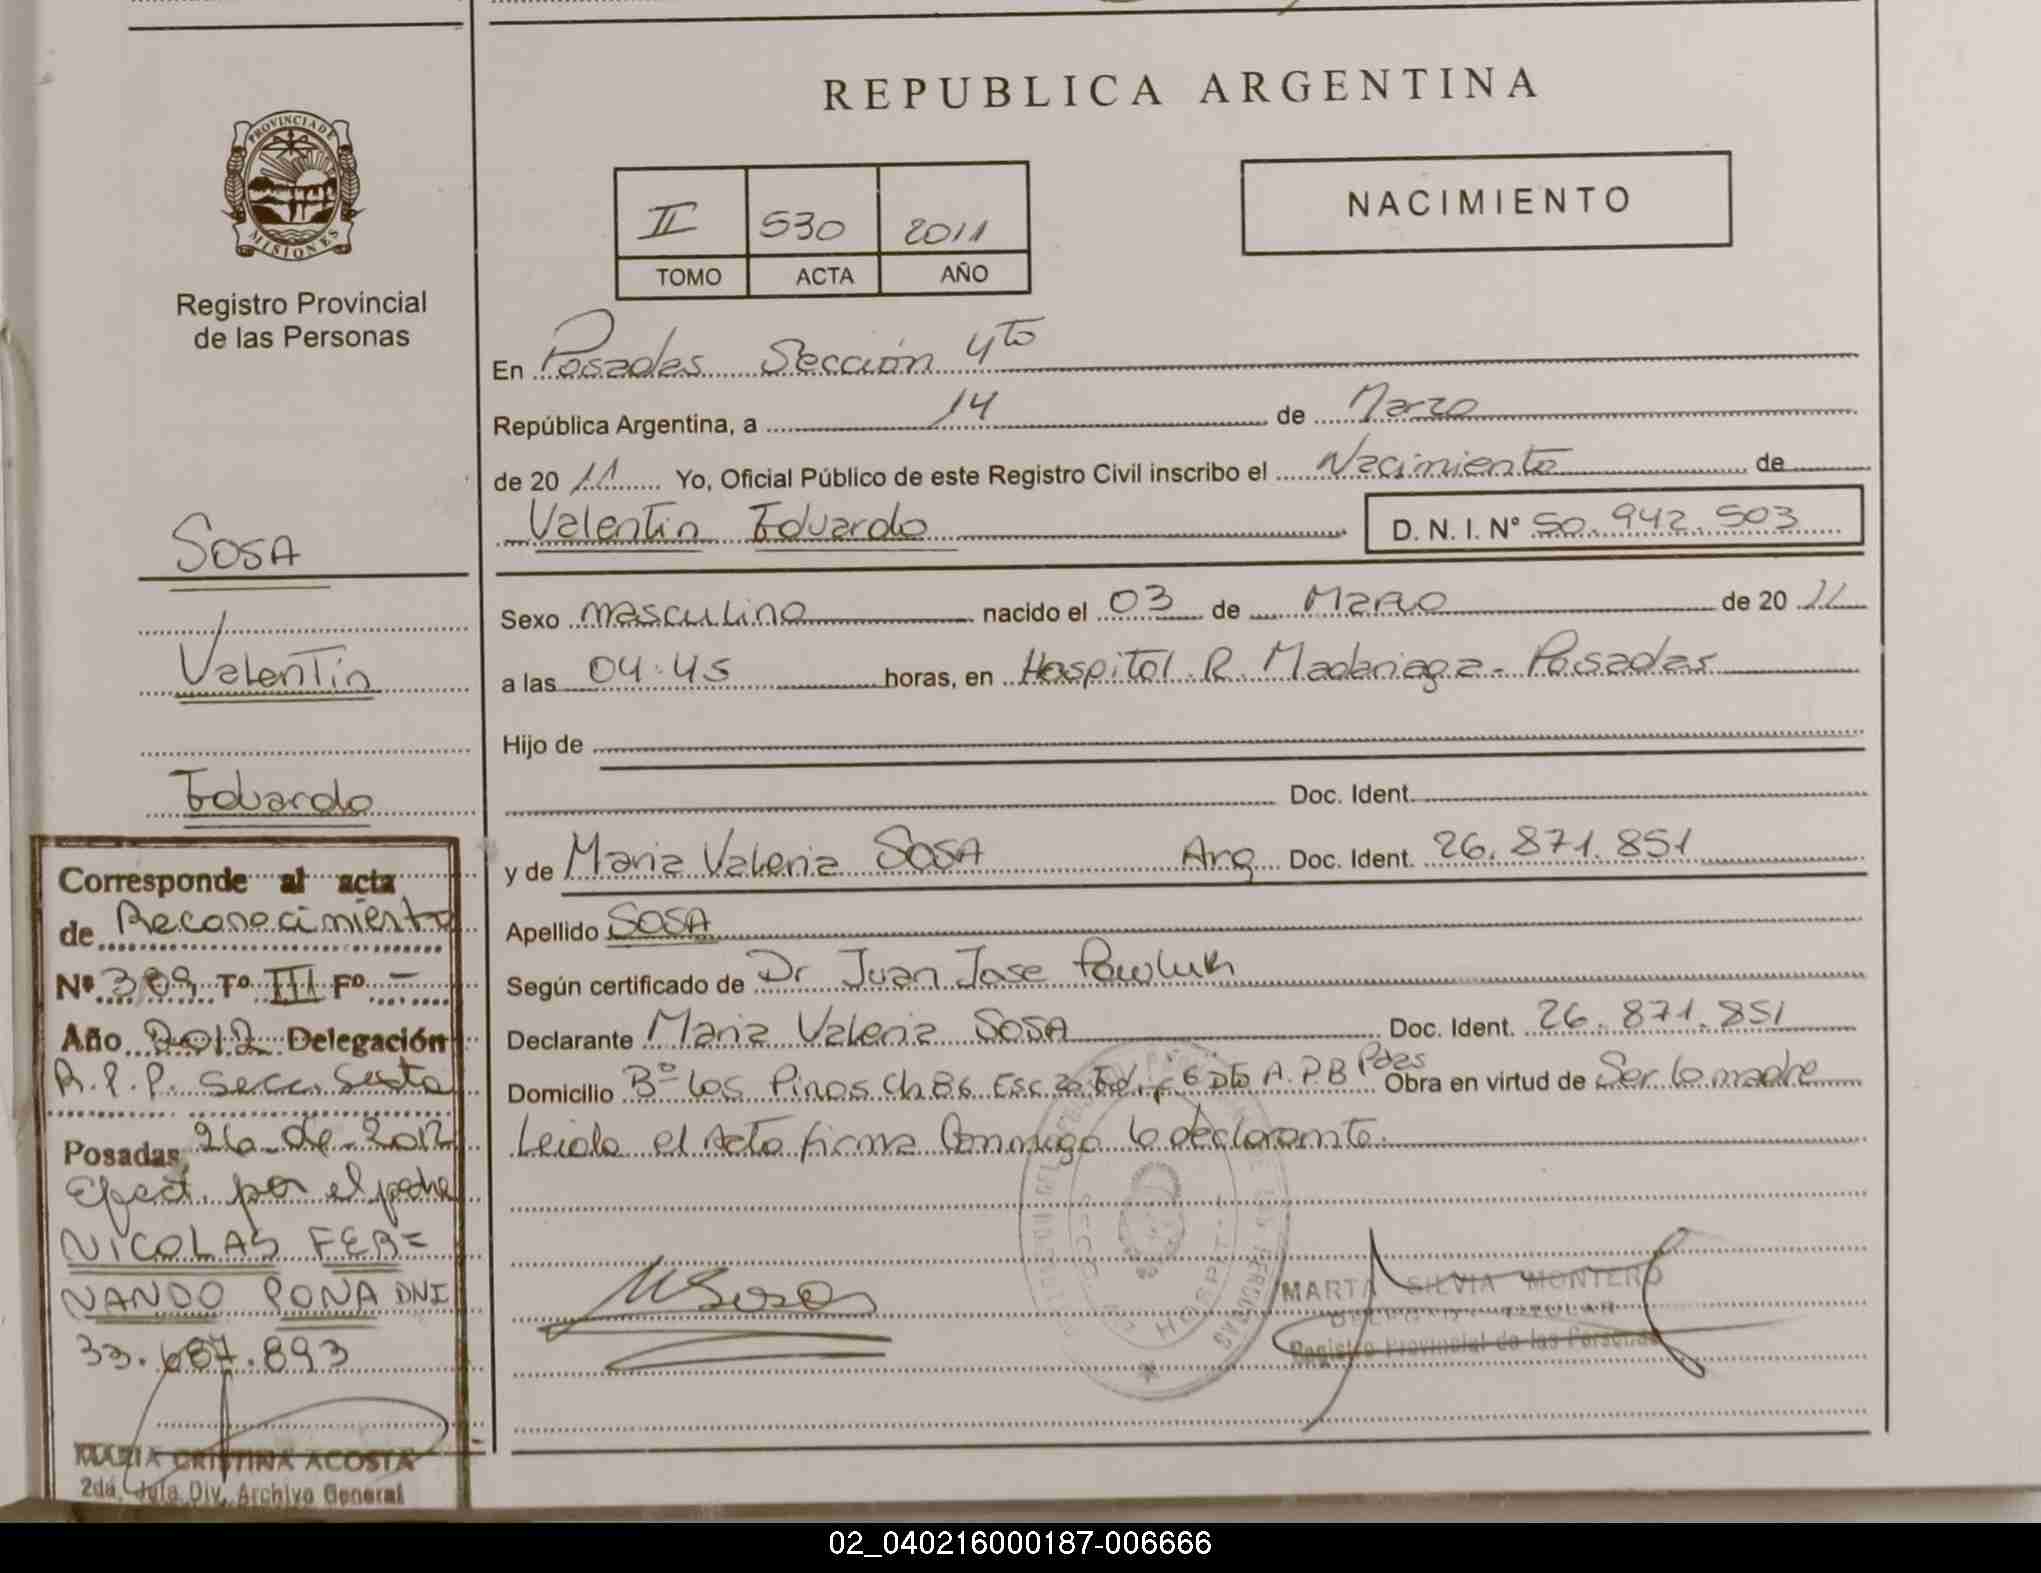 REPUBLICA ARGENTINA
PROVINCIA DE MISIONES
Registro Provincial
de las Personas
II 530 2011
TOMO ACTA AÑO
NACIMIENTO
En Posadas Sección 4to
República Argentina, a 14 de Marzo
de 20 11 Yo, Oficial Público de este Registro Civil inscribo el Nacimiento de
Valentin Eduardo D. N. I. N° 50.942.503
Sexo masculino nacido el 03 de Marzo de 20 11
a las 04:45 horas, en Hospital R. Madariaga - Posadas
Hijo de
Doc. Ident.
y de Maria Valeria SOSA Arg Doc. Ident. 26.871.851
Apellido SOSA
Según certificado de Dr Juan Jose Pawluk
Declarante Maria Valeria SOSA Doc. Ident. 26.871.851
Domicilio B° Los Pinos Ch 86 Esc 20 Ed. 6 Dto A. P.B Pdas Obra en virtud de Ser la madre
Leida el Acta firma Conmigo la declarante.
MSosa
MARTA SILVIA MONTERO
TITULAR
Registro Provincial de las Personas
SOSA
Valentin
Eduardo
Corresponde al acta
de Reconocimiento
Nº 389 Tº III Fº -
Año 2012 Delegación
R.P.P. Secc. Sexta
Posadas, 26 - 2012
Efect. por el padre
NICOLAS FER=
NANDO PONA DNI
33.687.893
MARIA CRISTINA ACOSTA
2da. Jefa Div. Archivo General
02_040216000187-006666